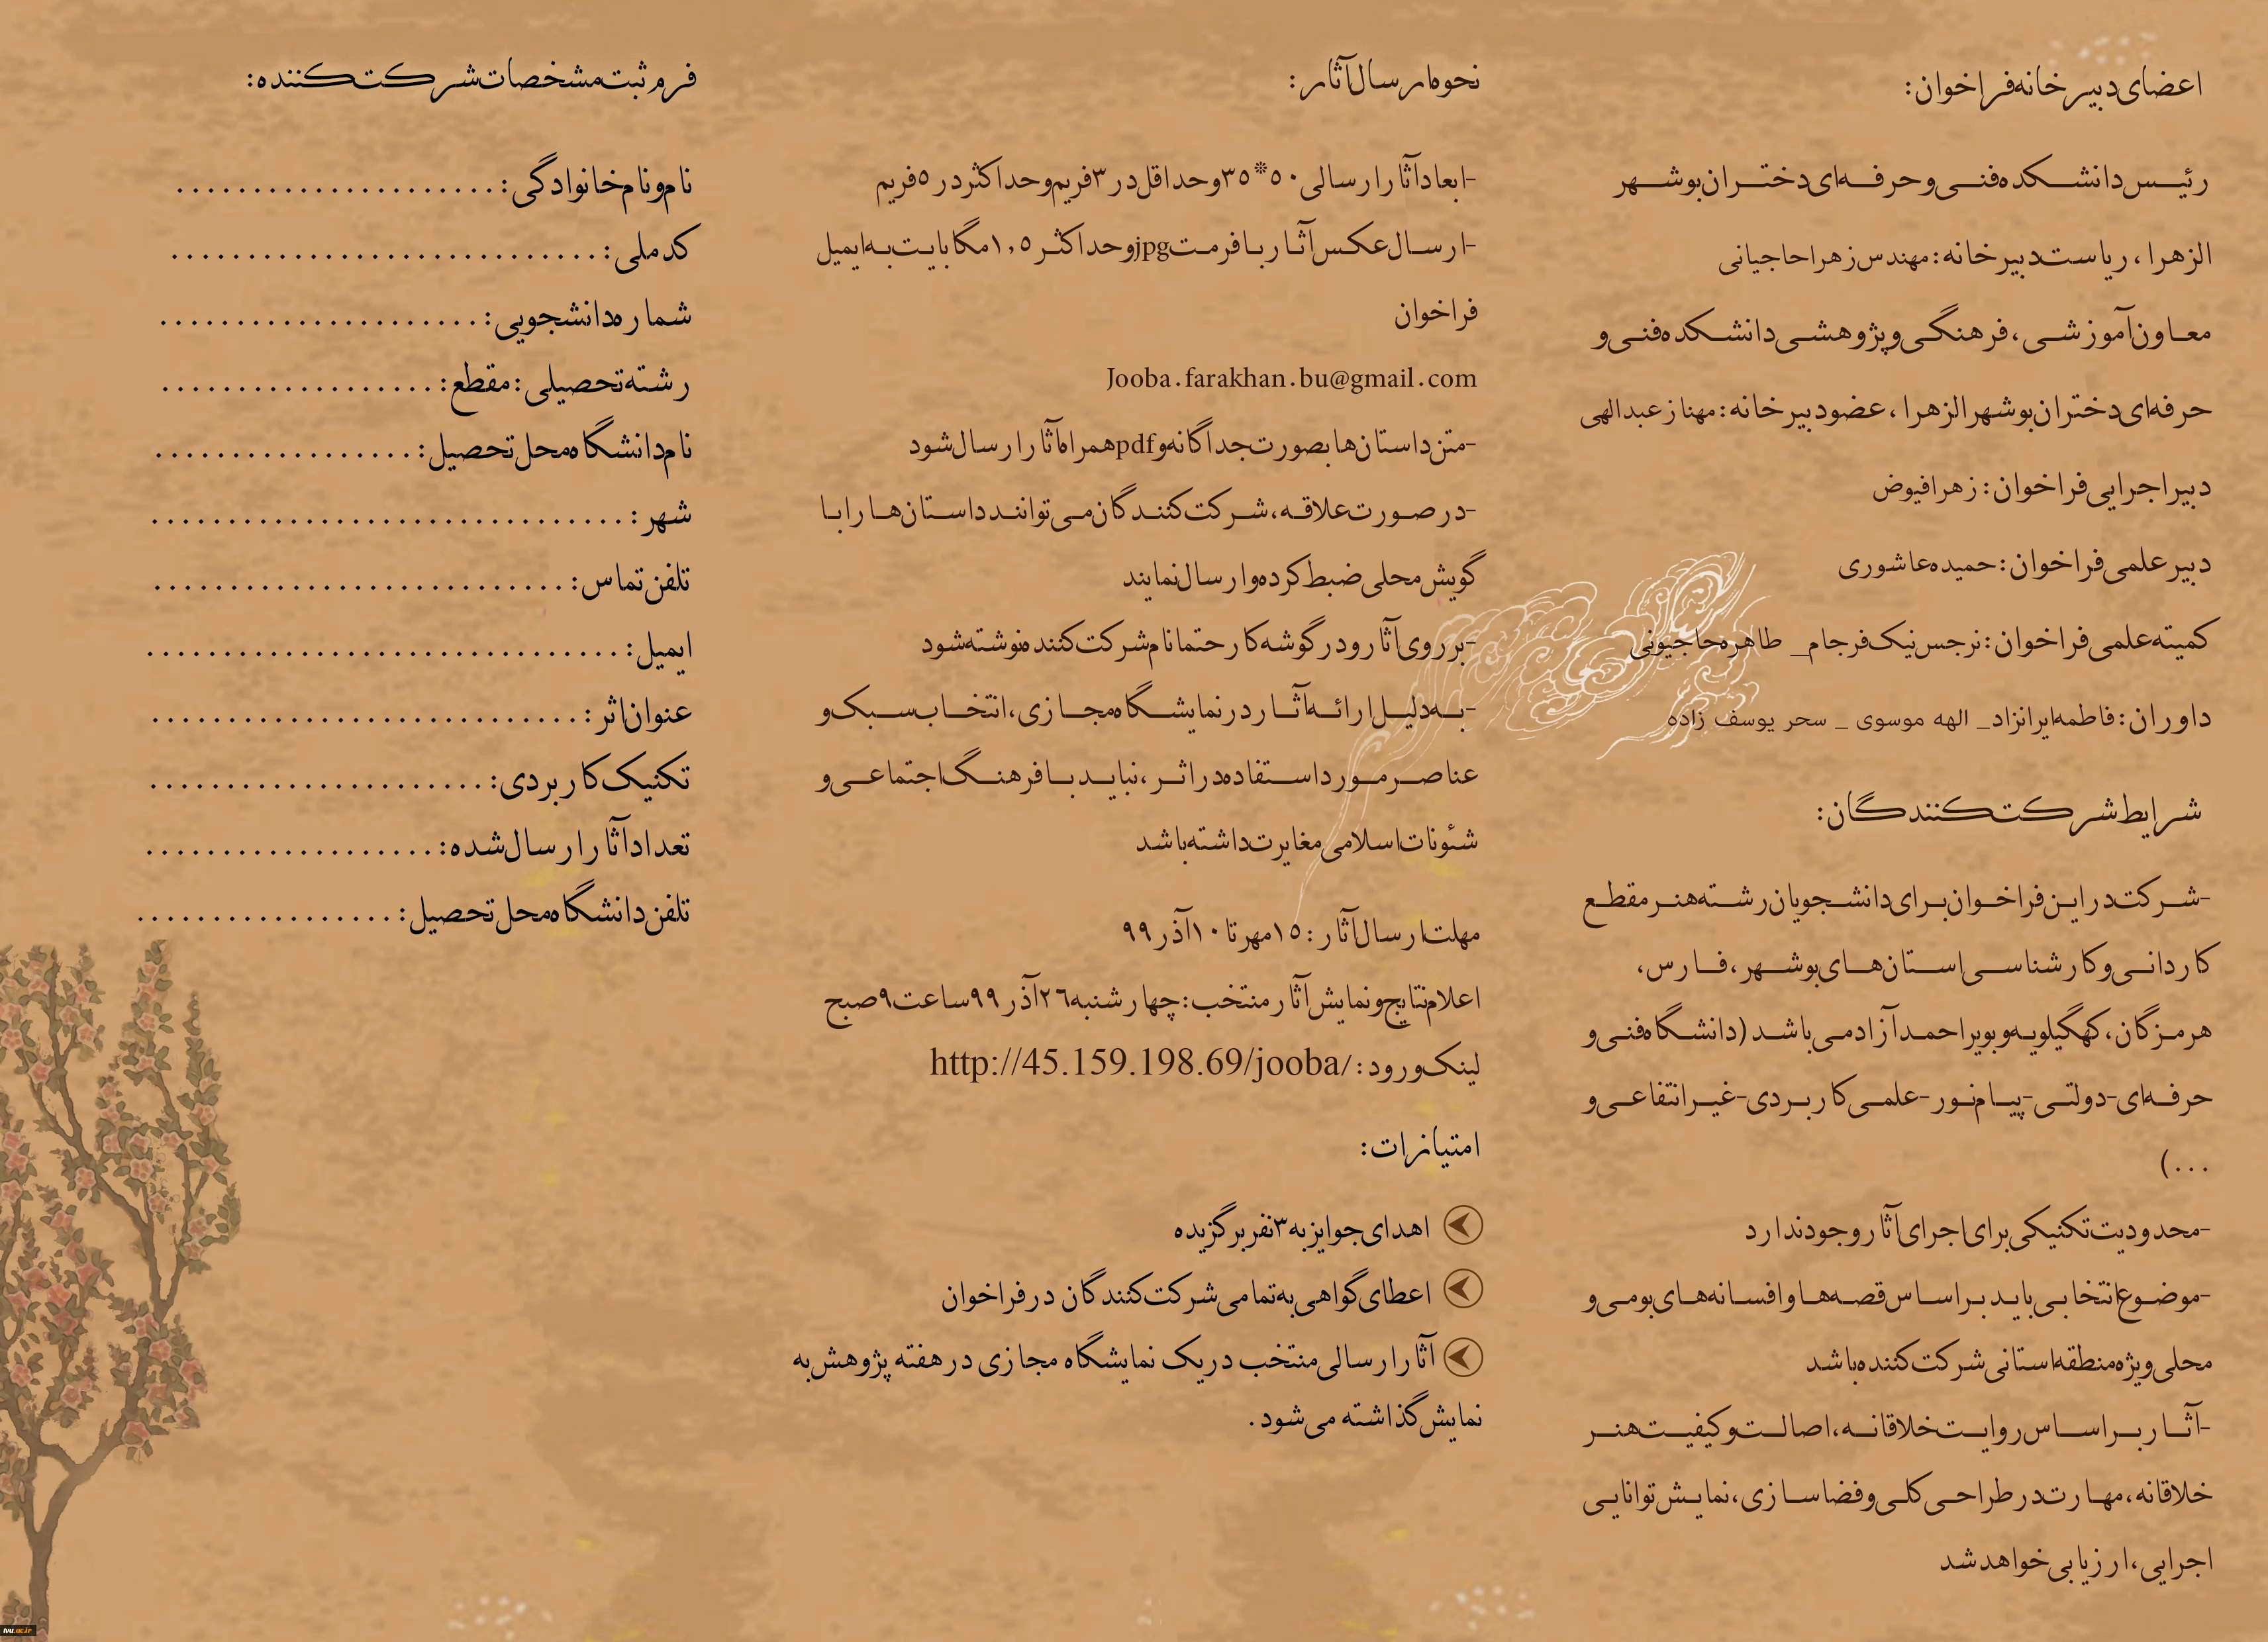 اعضای دبیرخانه فراخوان:
رئیس دانشکده فنی و حرفه‌ای دختران بوشهر
الزهرا، ریاست دبیرخانه: مهندس زهرا حاجیانی
معاون آموزشی، فرهنگی و پژوهشی دانشکده فنی و
حرفه‌ای دختران بوشهر الزهرا، عضو دبیرخانه: مهناز عبدالهی
دبیر اجرایی فراخوان: زهرا فیوض
دبیر علمی فراخوان: حمیده عاشوری
کمیته علمی فراخوان: نرجس نیک فرجام_ طاهره حاجیونی
داوران: فاطمه ایرانزاد_ الهه موسوی _ سحر یوسف زاده
شرایط شرکت کنندگان:
-شرکت در این فراخوان برای دانشجویان رشته هنر مقطع
کاردانی و کارشناسی استان‌های بوشهر، فارس،
هرمزگان، کهگیلویه و بویراحمد آزاد می باشد (دانشگاه فنی و
حرفه‌ای-دولتی-پیام نور-علمی کاربردی-غیرانتفاعی و
...)
-محدودیت تکنیکی برای اجرای آثار وجود ندارد
-موضوع انتخابی باید بر اساس قصه‌ها و افسانه‌های بومی و
محلی ویژه منطقه استانی شرکت کننده باشد
-آثار بر اساس روایت خلاقانه، اصالت و کیفیت هنر
خلاقانه، مهارت در طراحی کلی و فضاسازی، نمایش توانایی
اجرایی، ارزیابی خواهد شد
نحوه ارسال آثار:
-ابعاد آثار ارسالی ۵۰*۳۵ و حداقل در ۳ فریم و حداکثر در ۵ فریم
-ارسال عکس آثار با فرمت jpg و حداکثر ۱,۵ مگابایت به ایمیل
فراخوان
Jooba.farakhan.bu@gmail.com
-متن داستان‌ها بصورت جداگانه و pdf همراه آثار ارسال شود
-در صورت علاقه، شرکت کنندگان می توانند داستان‌ها را با
گویش محلی ضبط کرده و ارسال نمایند
-بر روی آثار و در گوشه کار حتما نام شرکت کننده نوشته شود
-به دلیل ارائه آثار در نمایشگاه مجازی، انتخاب سبک و
عناصر مورد استفاده در اثر، نباید با فرهنگ اجتماعی و
شئونات اسلامی مغایرت داشته باشد
مهلت ارسال آثار: ۱۵ مهر تا ۱۰ آذر ۹۹
اعلام نتایج و نمایش آثار منتخب: چهارشنبه ۲۶ آذر ۹۹ ساعت ۹ صبح
لینک ورود: http://45.159.198.69/jooba/
امتیازات:
اهدای جوایز به ۳ نفر برگزیده
اعطای گواهی به تمامی شرکت کنندگان در فراخوان
آثار ارسالی منتخب در یک نمایشگاه مجازی در هفته پژوهش به
نمایش گذاشته می شود.
فرم ثبت مشخصات شرکت کننده:
نام و نام خانوادگی: .........................
کد ملی: ..................................
شماره دانشجویی: .........................
رشته تحصیلی: مقطع: ......................
نام دانشگاه محل تحصیل: ....................
شهر: .....................................
تلفن تماس: ................................
ایمیل: .....................................
عنوان اثر: ..................................
تکنیک کاربردی: ...........................
تعداد آثار ارسال شده: .......................
تلفن دانشگاه محل تحصیل: ....................
tvu.ac.ir